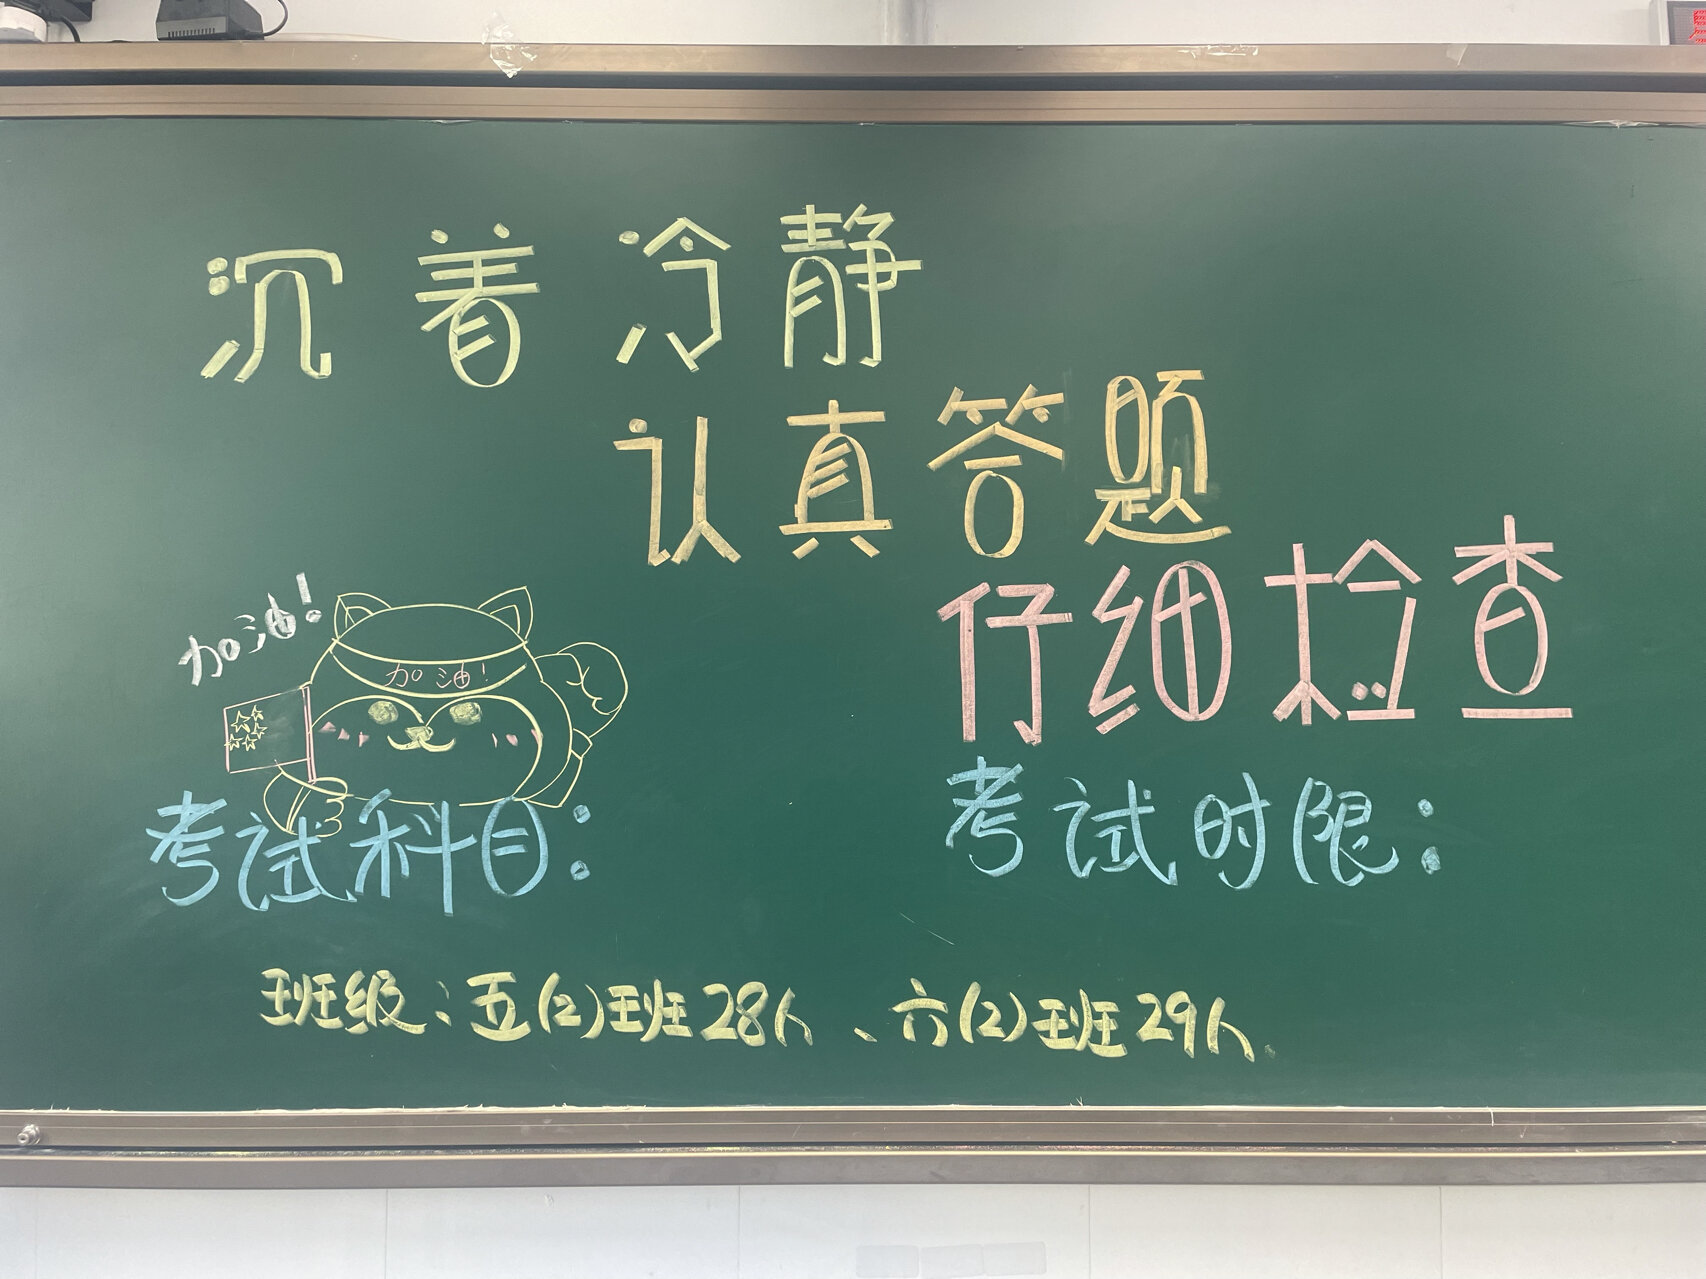 沉着冷静
认真答题
仔细检查
加油!
加油!
考试科目:
考试时限:
班级:五(2)班28人、六(2)班29人